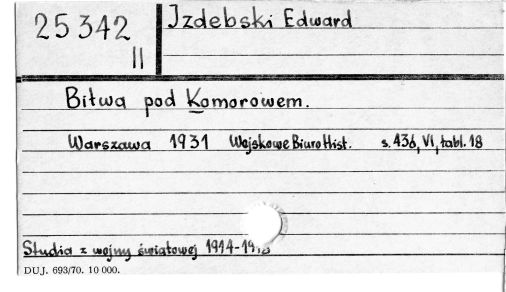 25342
II
Izdebski Edward
Bitwa pod Komorowem.
Warszawa 1931 Wojskowe Biuro Hist. s. 436, VI, tabl. 18
Studia z wojny światowej 1914-1918
DUJ. 693/70. 10 000.